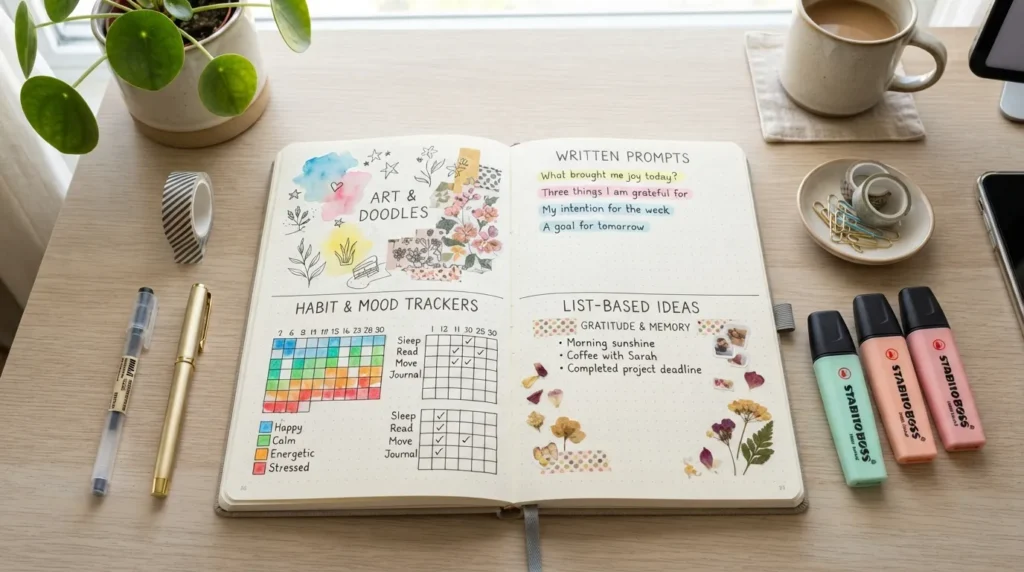 ART &
DOODLES
WRITTEN PROMPTS
What brought me joy today?
Three things I am grateful for
My intention for the week
A goal for tomorrow
HABIT & MOOD TRACKERS
Happy
Calm
Energetic
Stressed
1 12 11 30 25 30
Sleep
Read
Move
Journal
Sleep
Read
Move
Journal
LIST-BASED IDEAS
GRATITUDE & MEMORY
• Morning sunshine
• Coffee with Sarah
• Completed project deadline
STABILO BOSS
STABILO BOSS
STABILO BOSS